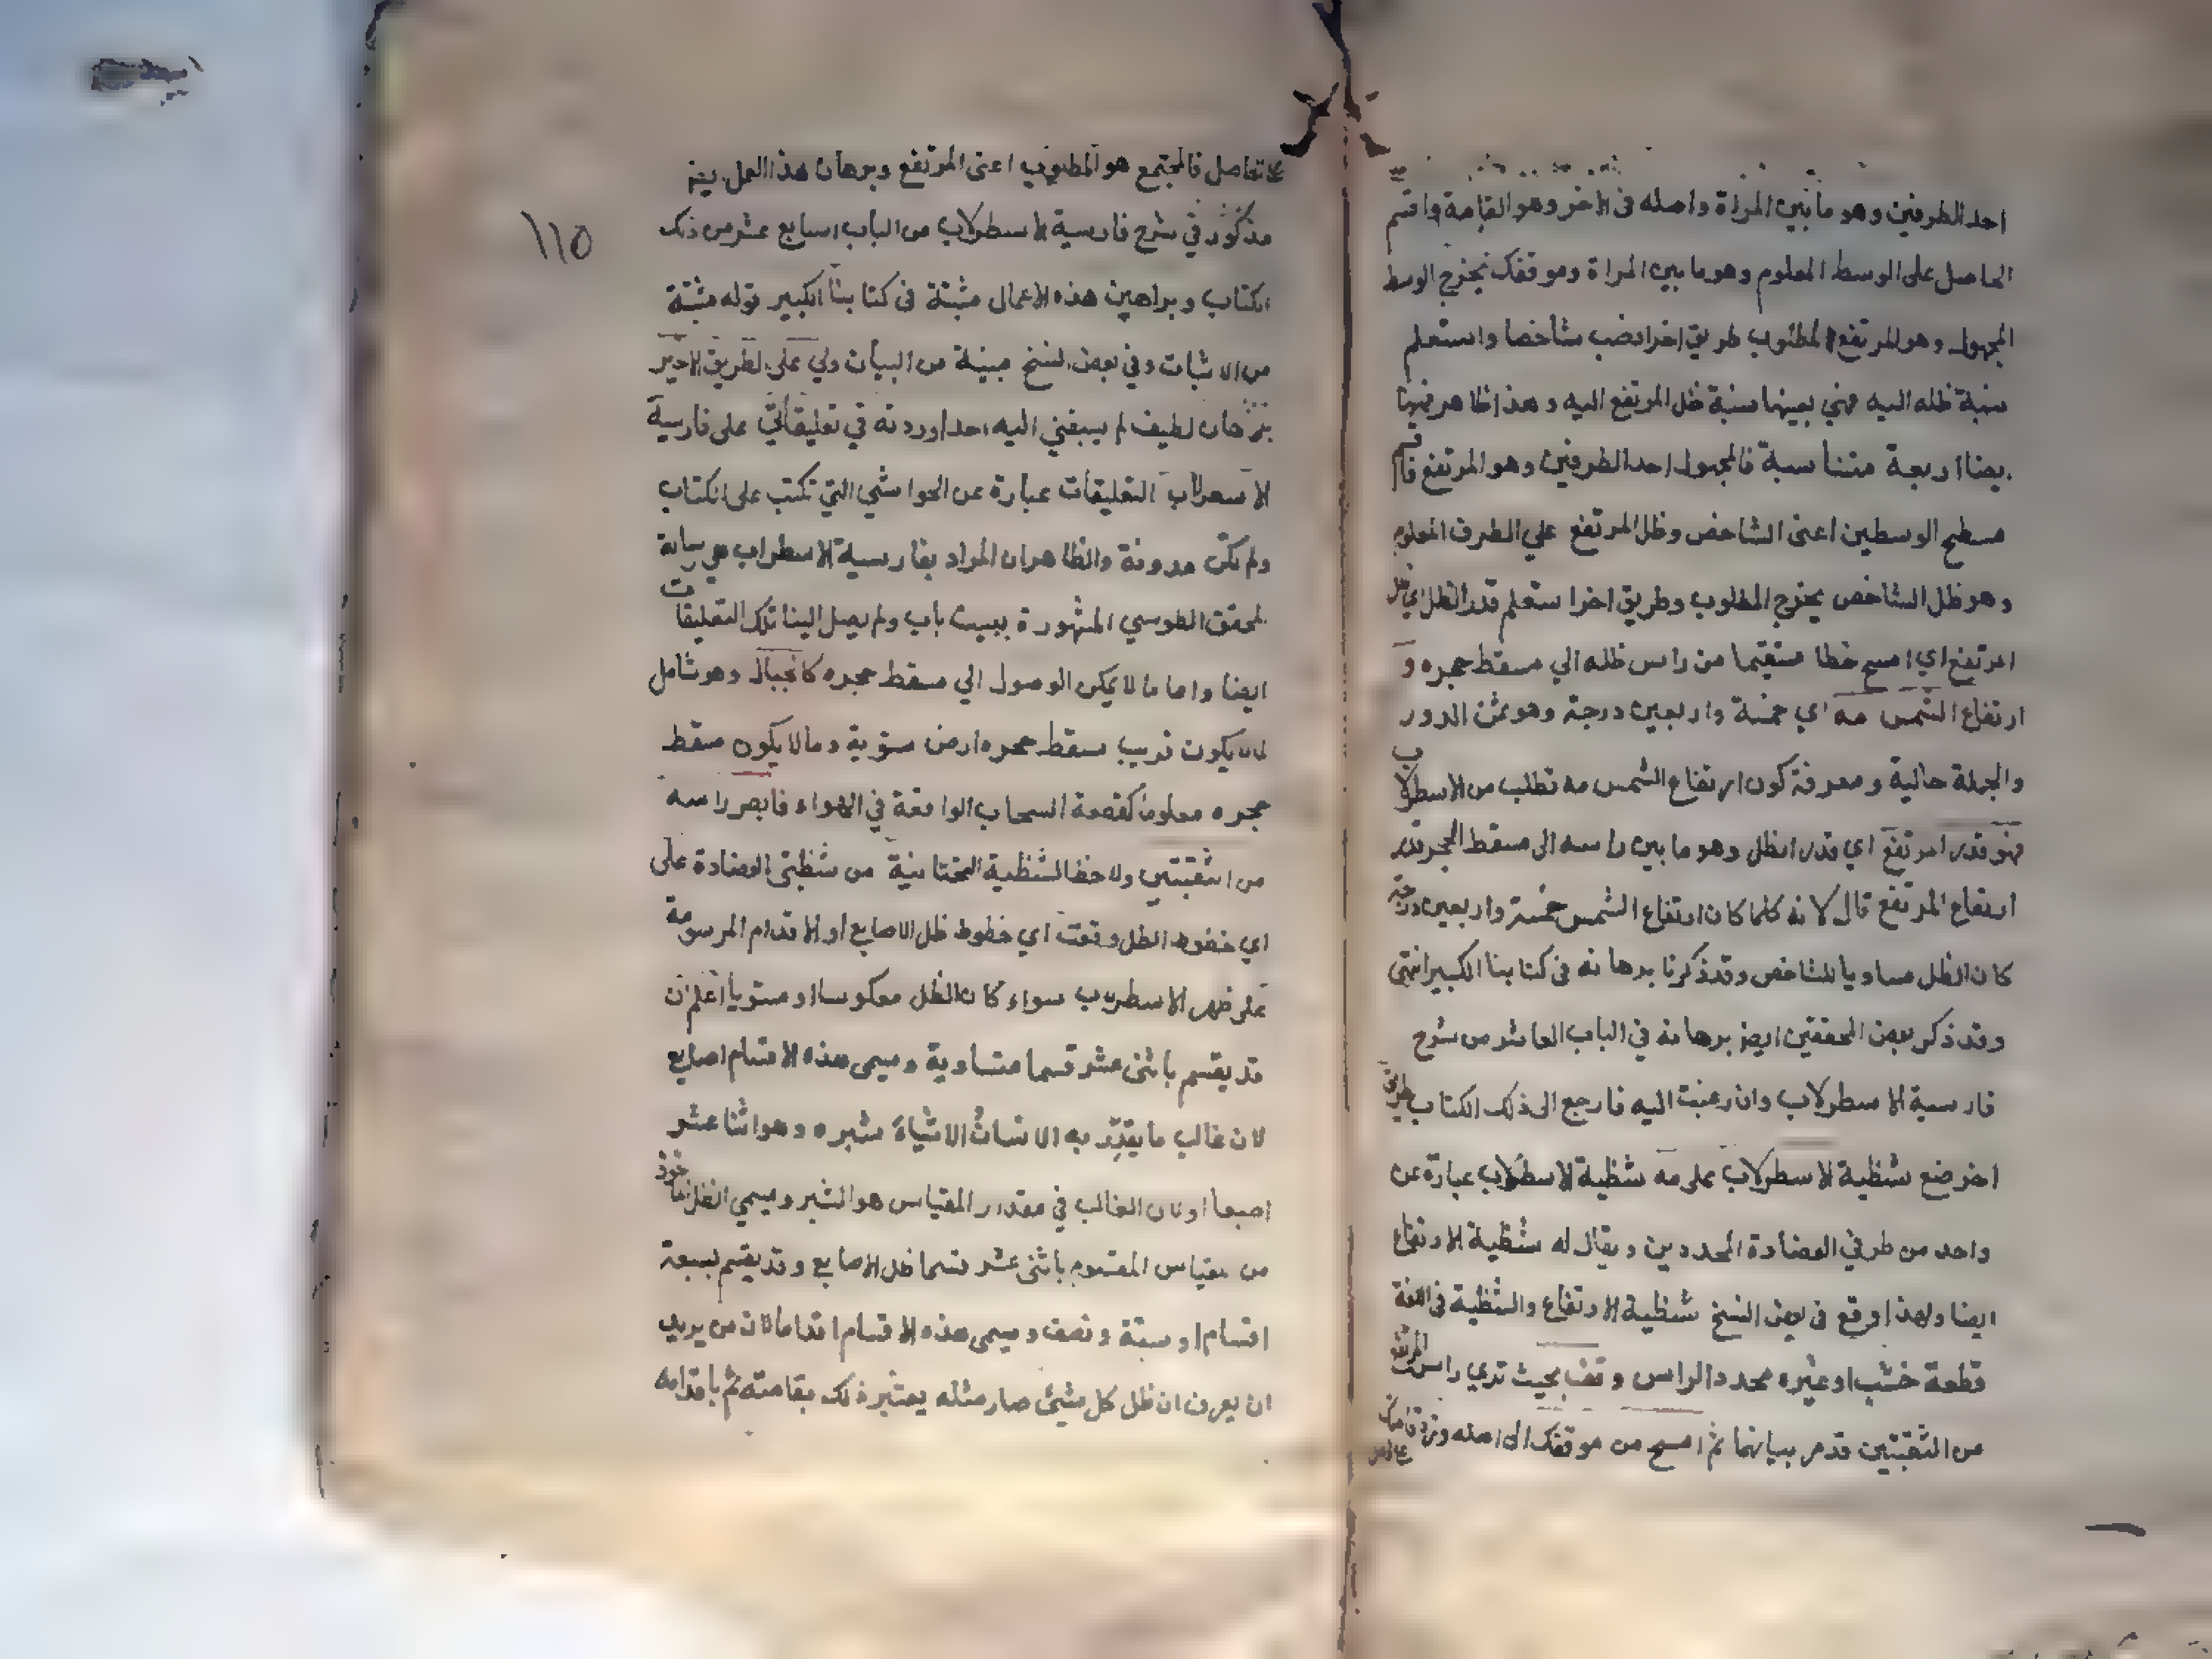 احد الطرفين وهو ما بين المراة واصله فى الاخر وهو القامة واقسم
الحاصل على الوسط المعلوم وهو ما بين المراة وموقفك يخرج الوسط
المجهول وهو المرتفع المطلوب طريق اخر انصب شاخصا واستعلم
نسبة ظله اليه فهي بعينها نسبة ظل المرتفع اليه وهذا ظاهر فهنا
ايضا اربعة متناسبة فالمجهول احد الطرفين وهو المرتفع فاقسم
مسطح الوسطين اعنى الشاخص وظل المرتفع علي الطرف المعلوم
وهو ظل الشاخص يخرج المطلوب وطريق اخر استعلم قدر الظل اي ظل
المرتفع اي امسح خطا مستقيما من راس ظله الي مسقط حجره و
ارتفاع الشمس مه اي خمسة واربعين درجة وهو ثمن الدور
والجملة حالية ومعرفة كون ارتفاع الشمس مه تطلب من الاسطرلاب
فهو قدر المرتفع اي قدر الظل وهو ما بين راسه الى مسقط الحجر قدر
ارتفاع المرتفع قال لانه كلما كان ارتفاع الشمس خمسة واربعين درجة
كان الظل مساويا للشاخص وقد ذكرنا برهانه فى كتابنا الكبير انتهى
وقد ذكر بعض المحققين ايضا برهانه في الباب العاشر من شرح
فارسية الاسطرلاب وان رغبت اليه فارجع الى ذلك الكتاب طريق
اخر ضع شظية الاسطرلاب على مه شظية الاسطرلاب عبارة عن
واحد من طرفي العضادة المحددين ويقال له شظية الارتفاع
ايضا ولهذا وقع فى بعض النسخ شظية الارتفاع والشظية فى اللغة
قطعة خشب او غيره محدد الراس وقف بحيث تري راس المرتفع
من الثقبتين قد مر بيانهما ثم امسح من موقفك الى اصله وزد قامتك
على الحاصل
على الحاصل فالمجتمع هو المطلوب اعنى المرتفع وبرهان هذا العمل ايضا
مذكور في شرح فارسية الاسطرلاب من الباب السابع عشر من ذلك
الكتاب وبراهين هذه الاعمال مثبتة فى كتابنا الكبير قوله مثبتة
من الاثبات وفي بعض النسخ مبينة من البيان ولي على الطريق الاخير
برهان لطيف لم يسبقني اليه احد اوردته في تعليقاتي على فارسية
الاسطرلاب التعليقات عبارة عن الحواشي التي تكتب على الكتاب
ولم تكن مدونة والظاهر ان المراد بفارسية الاسطرلاب هي رسالة
المحقق الطوسي المشهورة ببيست باب ولم يصل الينا تلك التعليقات
ايضا واما ما لا يمكن الوصول الي مسقط حجره كالجبال وهو شامل
لما لا يكون قريب مسقط حجره ارض مستوية وما لا يكون مسقط
حجره معلوما كقطعة السحاب الواقعة في الهواء فابصر راسه
من الثقبتين ولاحظ الشظية التحتانية من شظيتى العضادة على
اي خطوط الظل وقعت اي خطوط ظل الاصابع او الاقدام المرسومة
على ظهر الاسطرلاب سواء كان الظل معكوسا او مستويا اعلم ان
قد يقسم باثنى عشر قسما متساوية ويسمى هذه الاقسام اصابع
لان غالب ما يقدر به الانسان الاشياء شبره وهو اثنا عشر
اصبعا او لان الغالب في مقدار المقياس هو الشبر ويسمي الظل الماخوذ
من مقياس المقسوم باثنى عشر قسما ظل الاصابع وقد يقسم بسبعة
اقسام او ستة ونصف ويسمى هذه الاقسام اقداما لان من يريد
ان يعرف ان ظل كل شيئ صار مثله يعتبر ذلك بقامته ثم باقدامه
١١٥